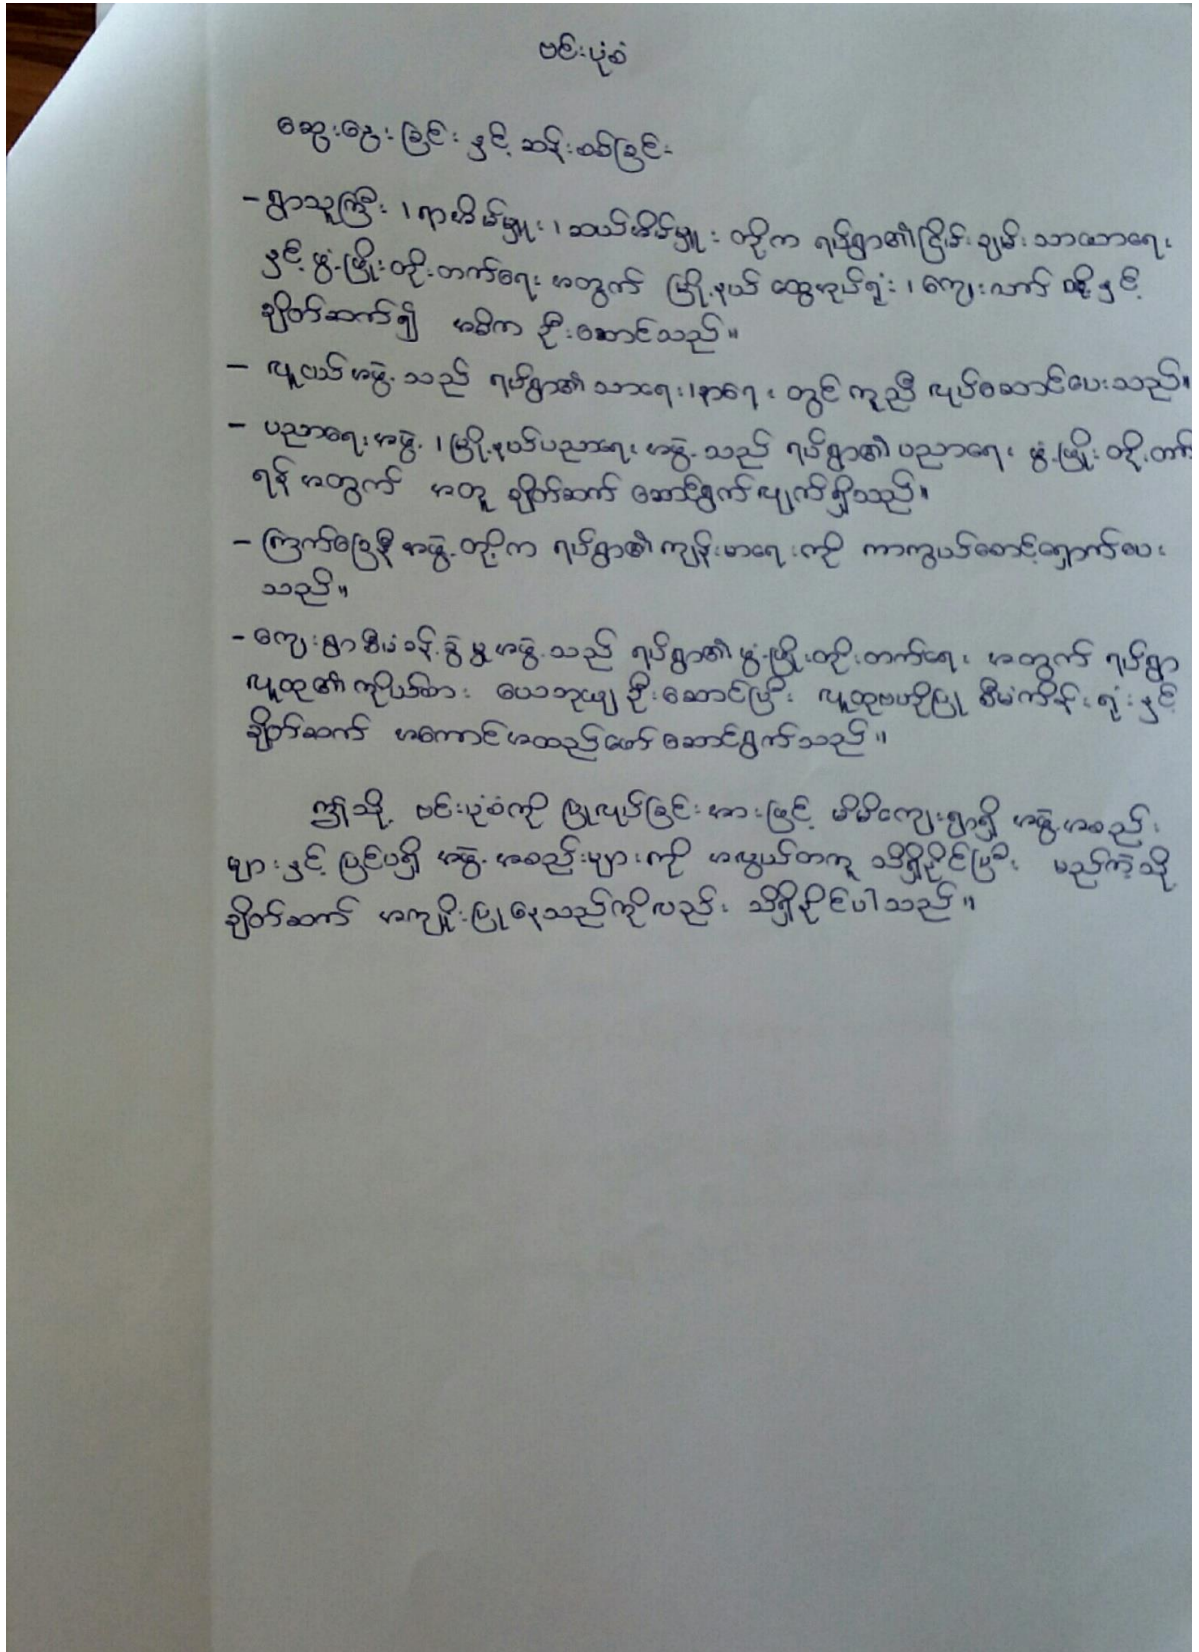 ဗင်းပုံစံ
ဆွေးနွေးခြင်း နှင့် ဆန်းစစ်ခြင်း
– ရွာသူကြီး ၊ ရာအိမ်မှူး ၊ ဆယ်အိမ်မှူး တို့က ရပ်ရွာ၏ ငြိမ်းချမ်းသာယာရေး
နှင့် ဖွံ့ဖြိုးတိုးတက်ရေး အတွက် မြို့နယ် ထွေအုပ်ရုံး ၊ ကျေးလက် တို့နှင့်
ချိတ်ဆက်၍ အဓိက ဦးဆောင်သည်။
– လူငယ်အဖွဲ့ သည် ရပ်ရွာ၏ သာရေး ၊ နာရေး တွင် ကူညီ လုပ်ဆောင်ပေးသည်။
– ပညာရေးအဖွဲ့ ၊ မြို့နယ်ပညာရေး အဖွဲ့ သည် ရပ်ရွာ၏ ပညာရေး ဖွံ့ဖြိုး တိုးတက်
ရန် အတွက် အတူ ချိတ်ဆက် ဆောင်ရွက်လျက်ရှိသည်။
– ကြက်ခြေနီ အဖွဲ့ တို့က ရပ်ရွာ၏ ကျန်းမာရေး ကို ကာကွယ်စောင့်ရှောက်ပေး
သည်။
– ကျေးရွာစီမံခန့်ခွဲမှုအဖွဲ့ သည် ရပ်ရွာ၏ ဖွံ့ဖြိုးတိုးတက်ရေး အတွက် ရပ်ရွာ
လူထု၏ ကိုယ်စား ယေဘုယျ ဦးဆောင်ပြီး လူထုဗဟိုပြု စီမံကိန်းရုံး နှင့်
ချိတ်ဆက် အကောင်အထည်ဖော် ဆောင်ရွက်သည်။
ဤသို့ ဗင်းပုံစံကို ပြုလုပ်ခြင်းအားဖြင့် မိမိကျေးရွာရှိ အဖွဲ့အစည်း
များ နှင့် ပြင်ပရှိ အဖွဲ့အစည်းများ ကို အလွယ်တကူ သိရှိနိုင်ပြီး မည်ကဲ့သို့
ချိတ်ဆက် အကျိုးပြုနေသည်ကိုလည်း သိရှိနိုင်ပါသည်။